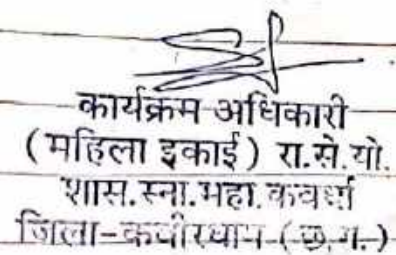 कार्यक्रम अधिकारी
(महिला इकाई) रा.से.यो.
शास.स्ना.महा.कवर्धा
जिला-कबीरधाम (छ.ग.)